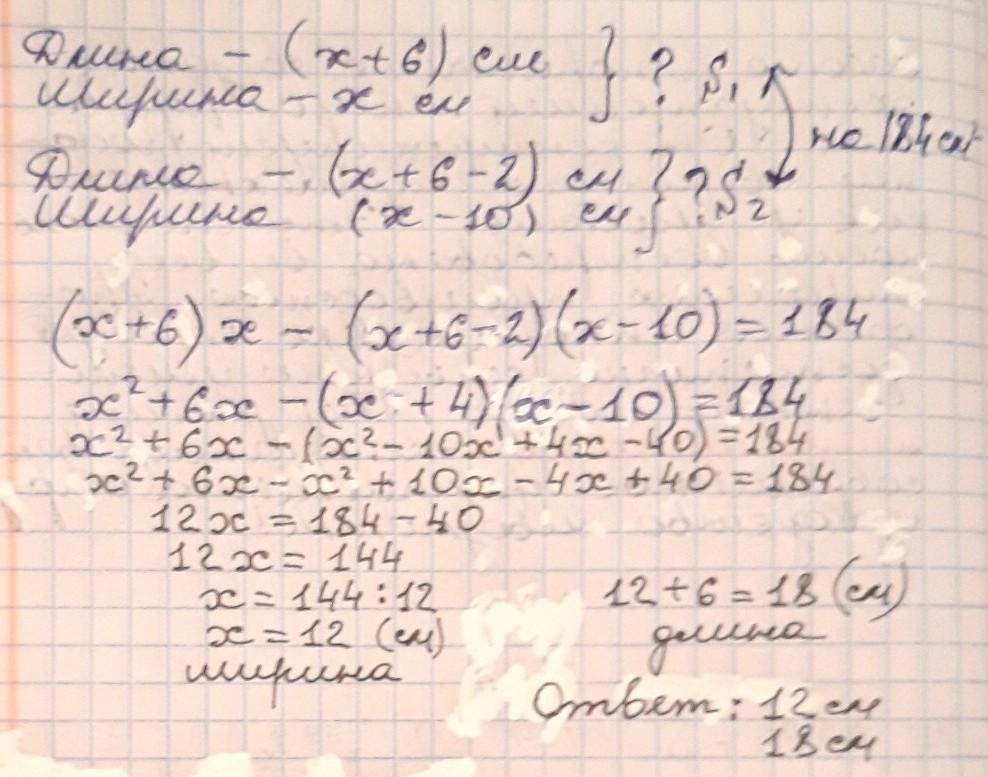 Длина – (x+6) см } ? S₁
Ширина – x см
на 184 см²
Длина – (x+6-2) см } ? S₂
Ширина (x-10) см
(x+6)x – (x+6-2)(x-10) = 184
x² + 6x – (x+4)(x-10) = 184
x² + 6x – (x² - 10x + 4x - 40) = 184
x² + 6x – x² + 10x – 4x + 40 = 184
12x = 184 - 40
12x = 144
x = 144 : 12
x = 12 (см)
ширина
12 + 6 = 18 (см)
длина
Ответ: 12 см
18 см